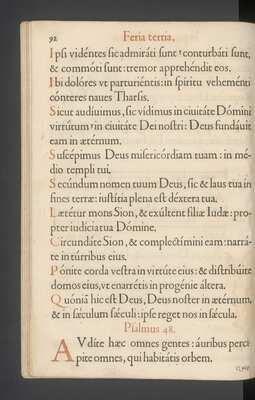 92 Feria tertia.
Ipsi vidéntes sic admiráti sunt, conturbáti sunt,
& commóti sunt: tremor apprehéndit eos.
Ibi dolóres vt parturiéntis: in spíritu veheménti
cónteres naues Tharsis.
Sicut audíuimus, sic vídimus in ciuitáte Dómini
virtútum, in ciuitáte Dei nostri: Deus fundáuit
eam in ætérnum.
Suscépimus Deus misericórdiam tuam: in mé-
dio templi tui.
Secúndum nomen tuum Deus, sic & laus tua in
fines terræ: iustítia plena est déxtera tua.
Lætétur mons Sion, & exúltent fíliæ Iudæ: pro-
pter iudícia tua Dómine.
Circúndáte Sion, & complectímini eam: narrá-
te in túrribus eius.
Pónite corda vestra in virtúte eius: & distribúite
domos eius, vt enarrétis in progénie áltera.
Quóniã hic est Deus, Deus noster in ætérnum,
& in sæculum sæculi: ipse reget nos in sæcula.
Psalmus 48.
AVdíte hæc omnes gentes: áuribus percí-
pite omnes, qui habitátis orbem.